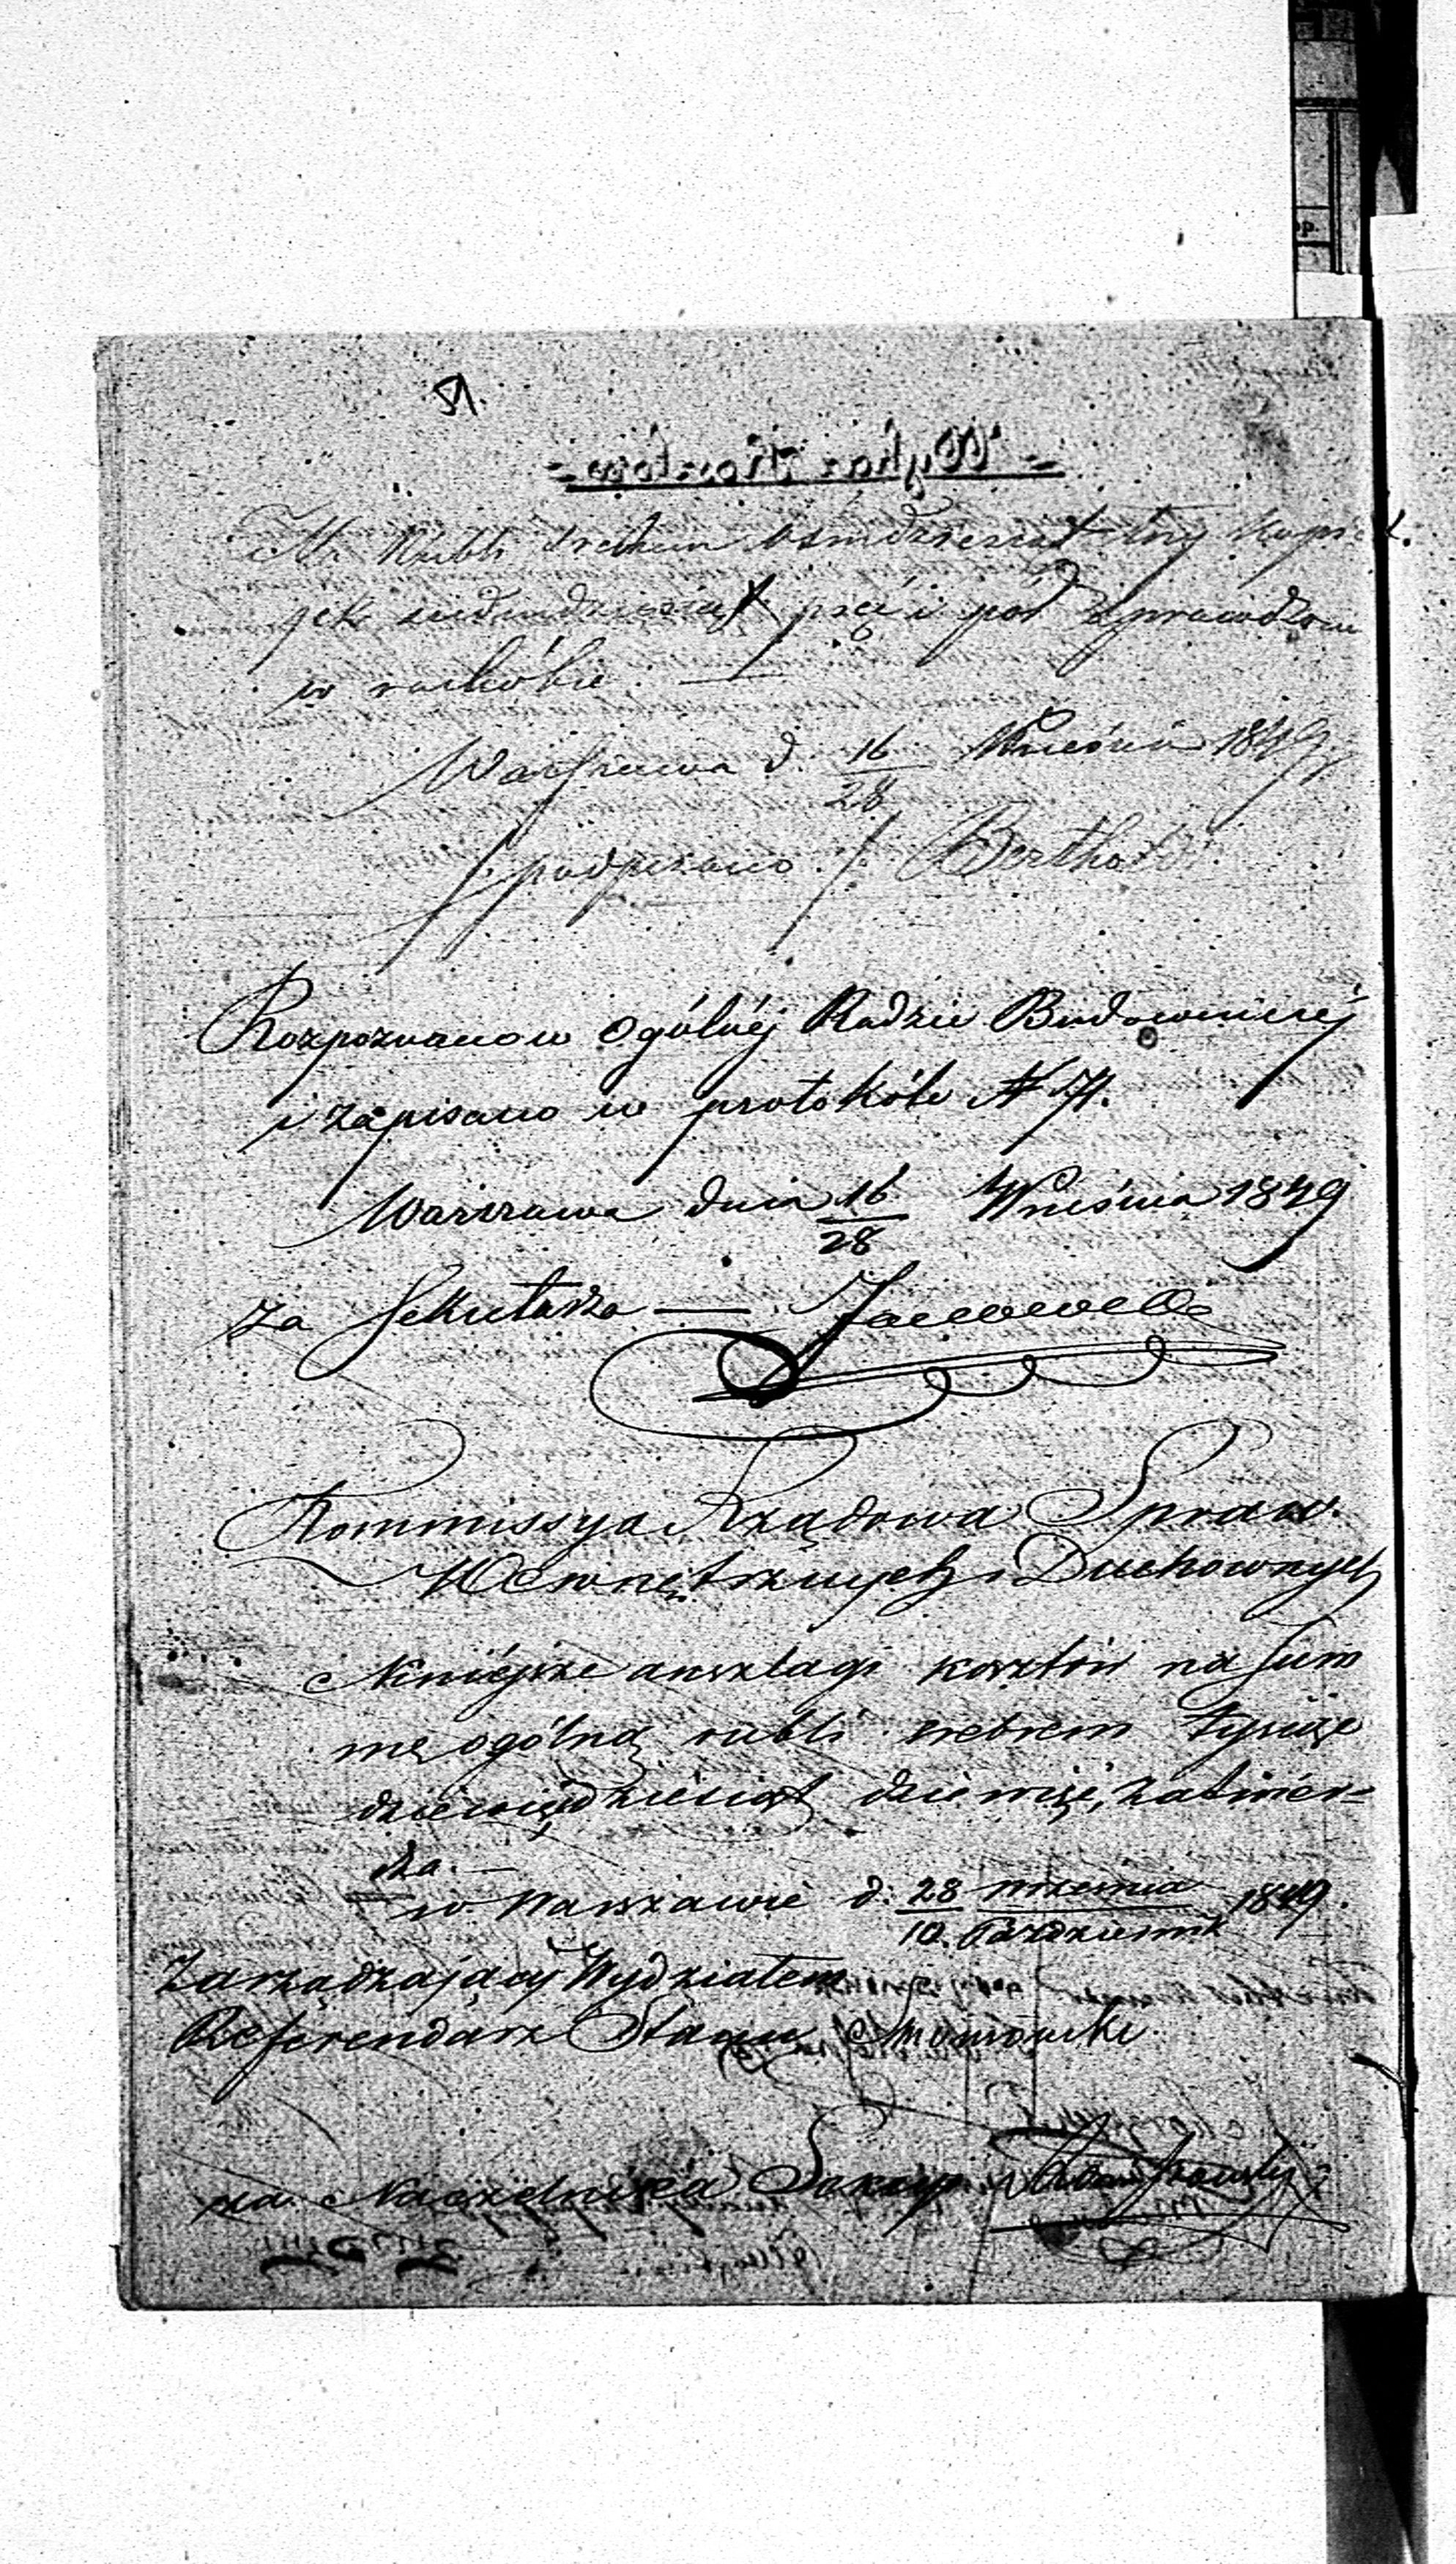 Na Rubli srebrem ośmdziesiąt trzy kopie
jek siedmdziesiąt pięć i pół sprawdzono
w rachubie. —
Warszawa d. 16/28 Września 1849
/: podpisano :/
Rozpoznano w Ogólnéj Radzie Budowniczéj
i zapisano w protokóle N 71.
Warszawa dnia 16/28 Września 1849
Za Sekretarza —
Kommissya Rządowa Spraw
Wewnętrznych i Duchownych
Niniéjsze anszlagi kosztów na Sum
mę ogólną rubli srebrem tysiąc
dziewięćdziesiąt dziewięć, zatwier=
dza. —
w Warszawie d. 28 Września / 10. Październik 1849.
Zarządzający Wydziałem
Referendarz Stanu
za Naczelnika Sekcyi